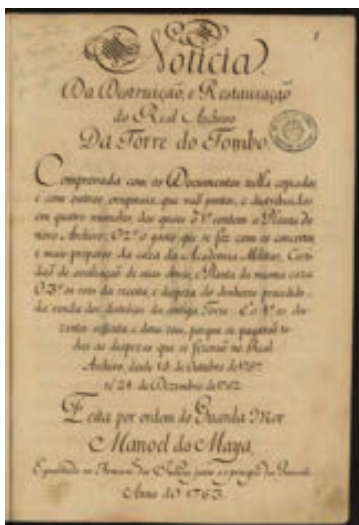 1
Noticia
Da Destruiçaõ, e Restauraçaõ
do Real Archivo
Da Torre do Tombo
Comprovada com os Documentos nella copiados
e com outros originaes, que vaõ juntos, e distribuidos
em quatro massos, dos quaes o 1º contem a Planta do
novo Archivo; O 2º o gasto que se fez com os concertos
e mais preparos da caza da Academia Militar, Certi-
daõ da avaliaçaõ de suas obras, e Planta da mesma caza
O 3º os da receita, e despeza do dinheiro procedido
da venda dos da antiga Torre. E o 4º os du-
zentos e dous, porque se pagaraõ to-
das as despezas que se fizeraõ no Real
Archivo, desde de Outubro de
té 24 de Dezembro de 1762
Feita por ordem do Guarda Mor
Manoel da Maya
no
Anno de 1763.